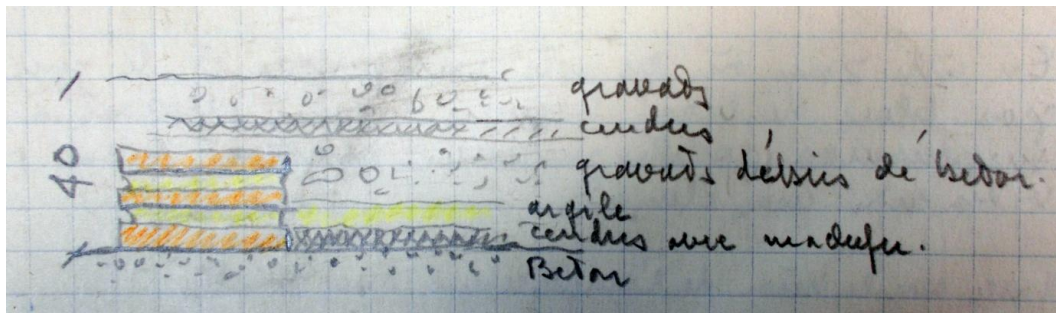 gravats
cendres
40
gravats débris de béton.
argile
cendres avec
Béton